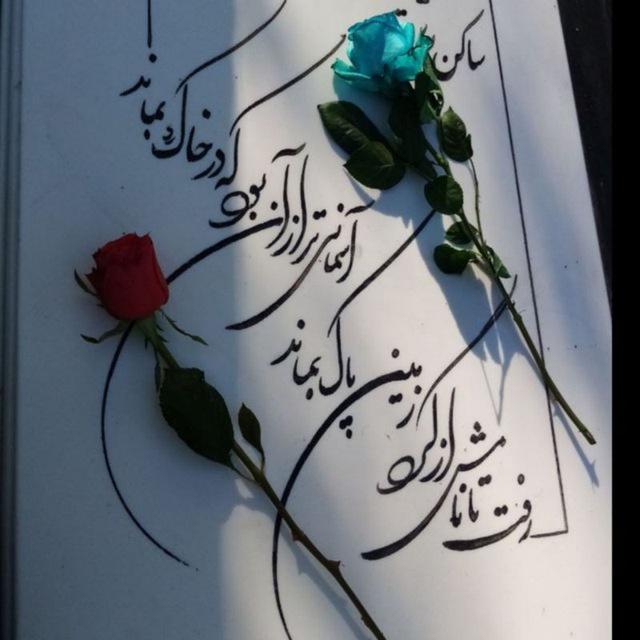 رفت تا نامش از گرد زمین پاک بماند
آسمانی تر از آن بود که در خاک بماند
ساکن